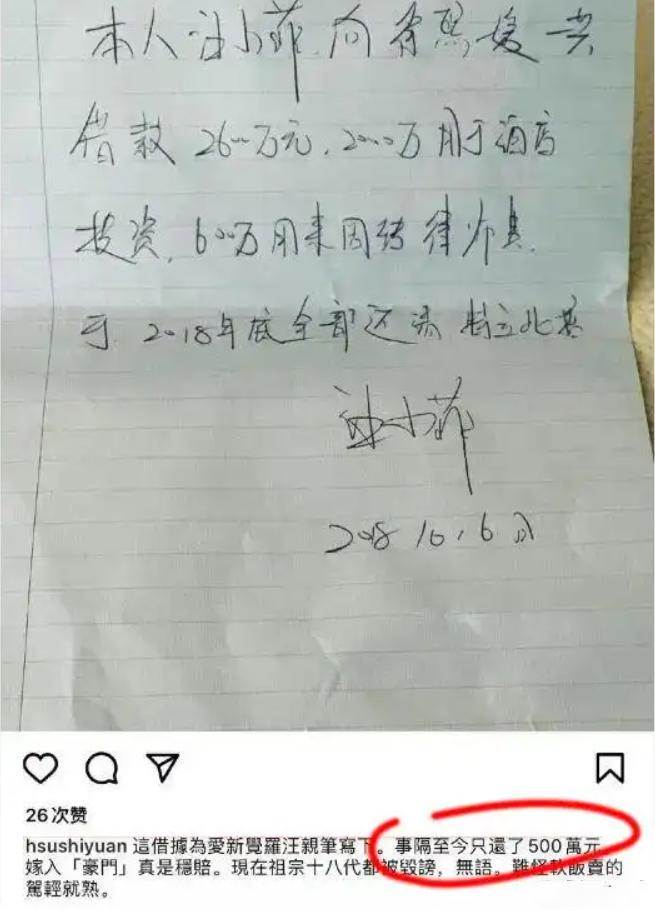 本人汪小菲向徐熙媛共
借款2600万元,2000万用于酒店
投资,600万用来周转律师费.
于2018年底全部还清 特立此
汪小菲
2018 10.6日
26 次赞
hsushiyuan 這借據為愛新覺羅汪親筆寫下。事隔至今只還了500萬元。
嫁入「豪門」真是穩賠。現在祖宗十八代都被毀謗，無語。難怪軟飯賣的
駕輕就熟。